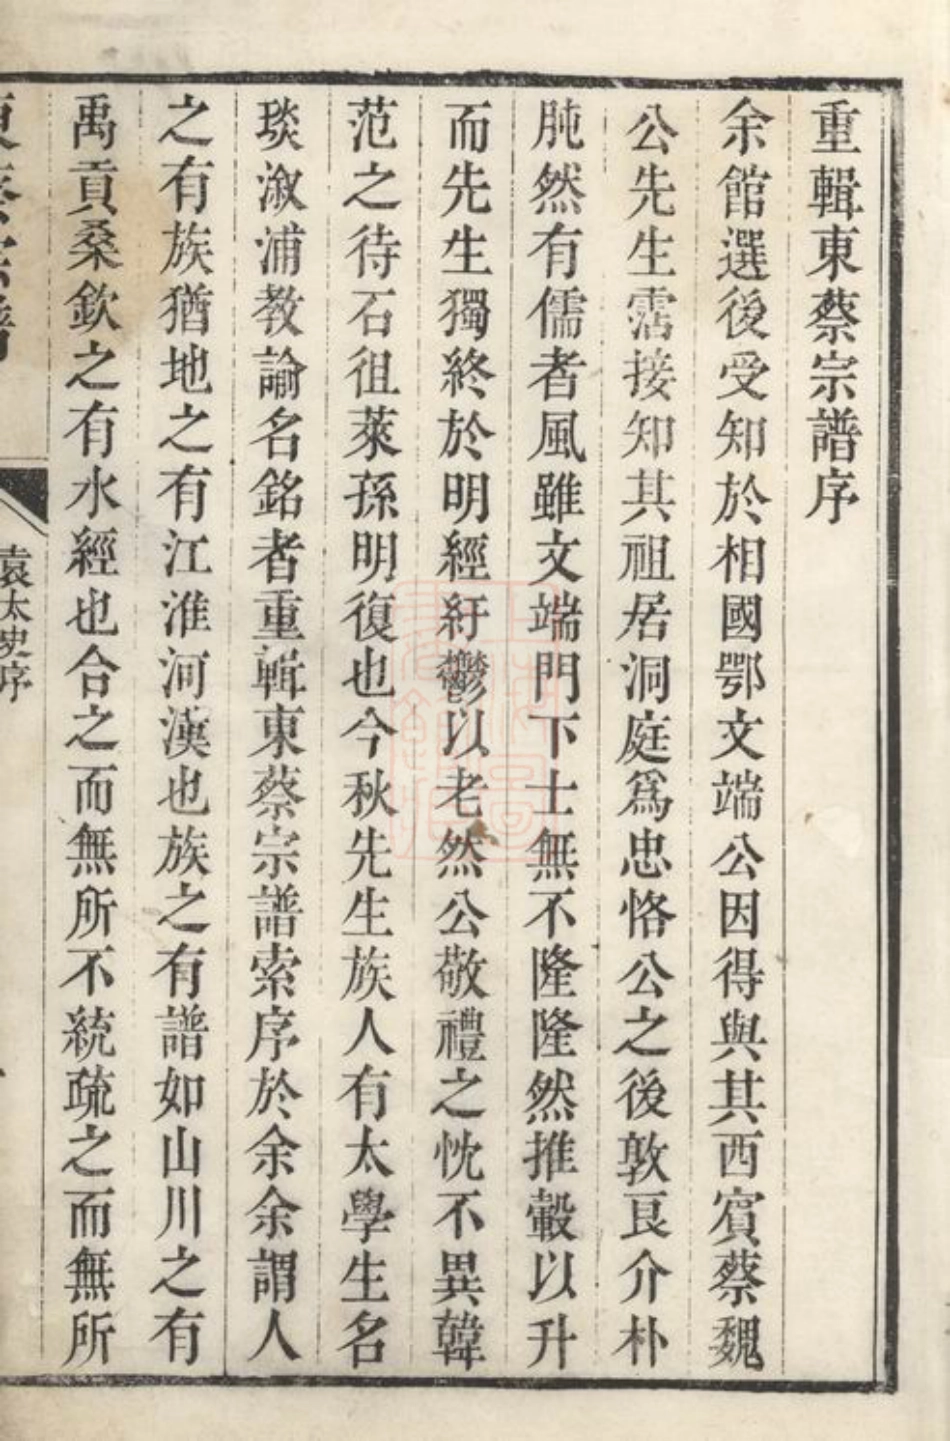 重輯東蔡宗譜序
余館選後受知於相國鄂文端公因得與其西賓蔡魏
公先生霑接知其祖居洞庭爲忠恪公之後敦艮介朴
肫然有儒者風雖文端門下士無不隆隆然推轂以升
而先生獨終於明經紆鬱以老然公敬禮之忱不異韓
范之待石徂萊孫明復也今秋先生族人有太學生名
琰漵浦教諭名銘者重輯東蔡宗譜索序於余余謂人
之有族猶地之有江淮河漢也族之有譜如山川之有
禹貢桑欽之有水經也合之而無所不統疏之而無所
袁太史序